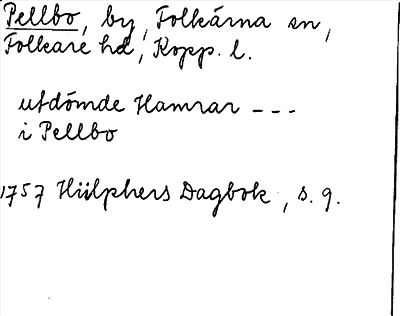 Pellbo, by, Folkärna sn,
Folkare hd, Kopp. l.
utdömde Hamrar ---
i Pellbo
1757 Hülphers Dagbok, s. 9.